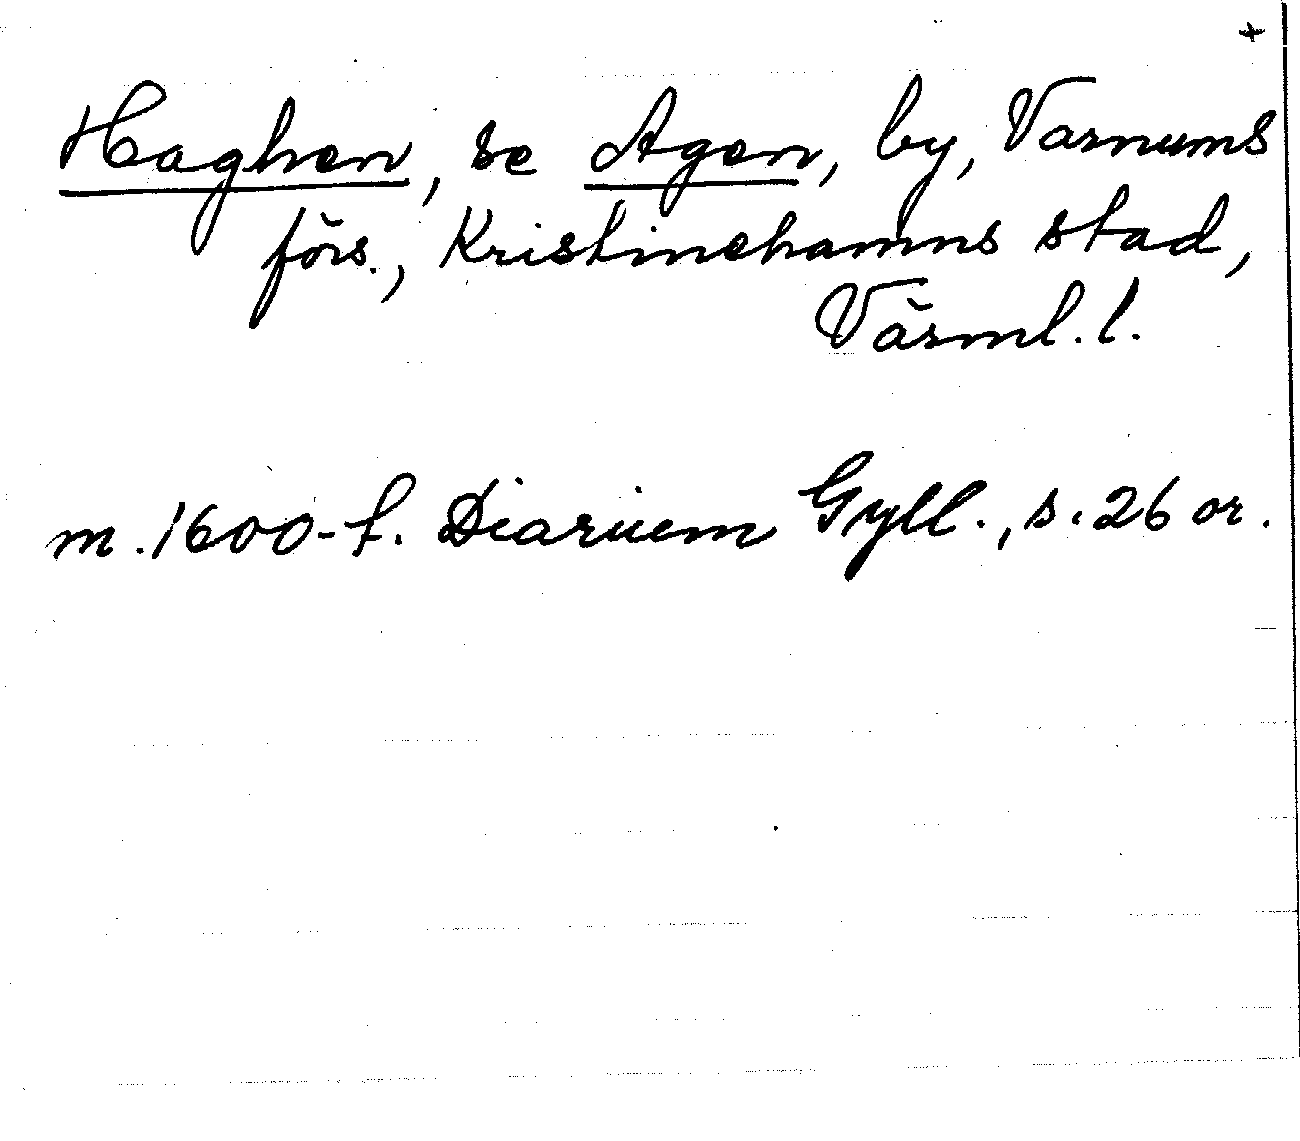 +
Haghen, se Agen, by, Varnums
förs., Kristinehamns stad,
Värml. l.
m. 1600-t. Diarium Gyll., s. 26 or.